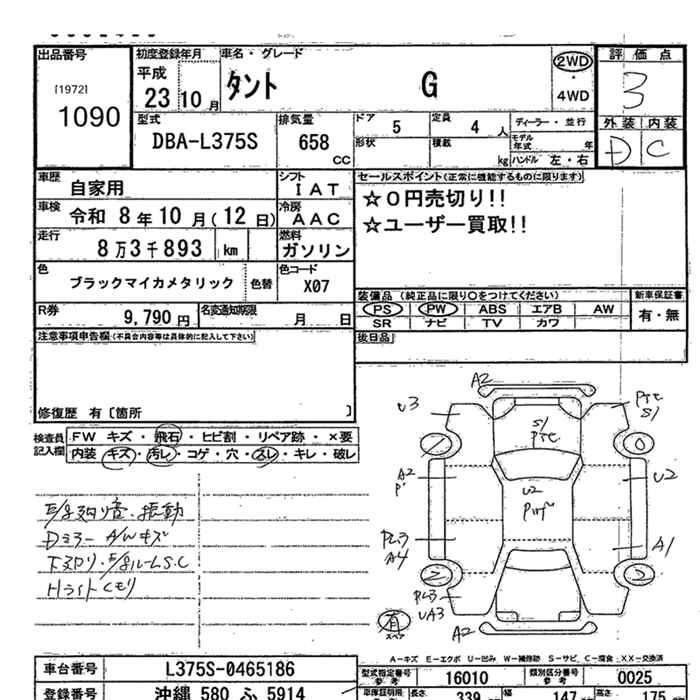 出品番号
[1972]
1090
初度登録年月
平成
23 10 月
車名・グレード
タント G
2WD
・
4WD
評価点
3
外装 内装
D C
型式
DBA-L375S
排気量
658
CC
ドア 5
定員 4 人
形状
積載 kg
ディーラー・並行
モデル年式 年
ハンドル 左・右
車歴 自家用
シフト
IAT
車検 令和 8 年 10 月 ( 12 日)
冷房
AAC
走行 8 万 3 千 893 km
燃料
ガソリン
色 ブラックマイカメタリック 色替
色コード
X07
R券 9,790 円
名変通知期限 月 日
セールスポイント(正常に機能するものに限ります)
☆0円売切り!!
☆ユーザー買取!!
装備品 (純正品に限り○をつけてください)
新車保証書
PS PW ABS エアB AW
SR ナビ TV カワ
有・無
後日品
注意事項申告欄(不具合内容等は具体的に記入して下さい)
修復歴 有 [箇所 ]
検査員記入欄
FW キズ・飛石・ヒビ割・リペア跡・×要
内装 キズ・汚レ・コゲ・穴・スレ・キレ・破レ
Dミラー A/Wキズ
Hライトくもり
A2
U3
S/
A2
P
U2
U2
A1
PL3
A4
PL3
UA3
A2
有
スペア
A-キズ E-エクボ U-凹み W-補修跡 S-サビ C-腐食 XX-交換済
車台番号 L375S-0465186
型式指定番号 16010
類別区分番号 0025
登録番号 沖縄 580 ふ 5914
長さ 339
幅 147
高さ 175